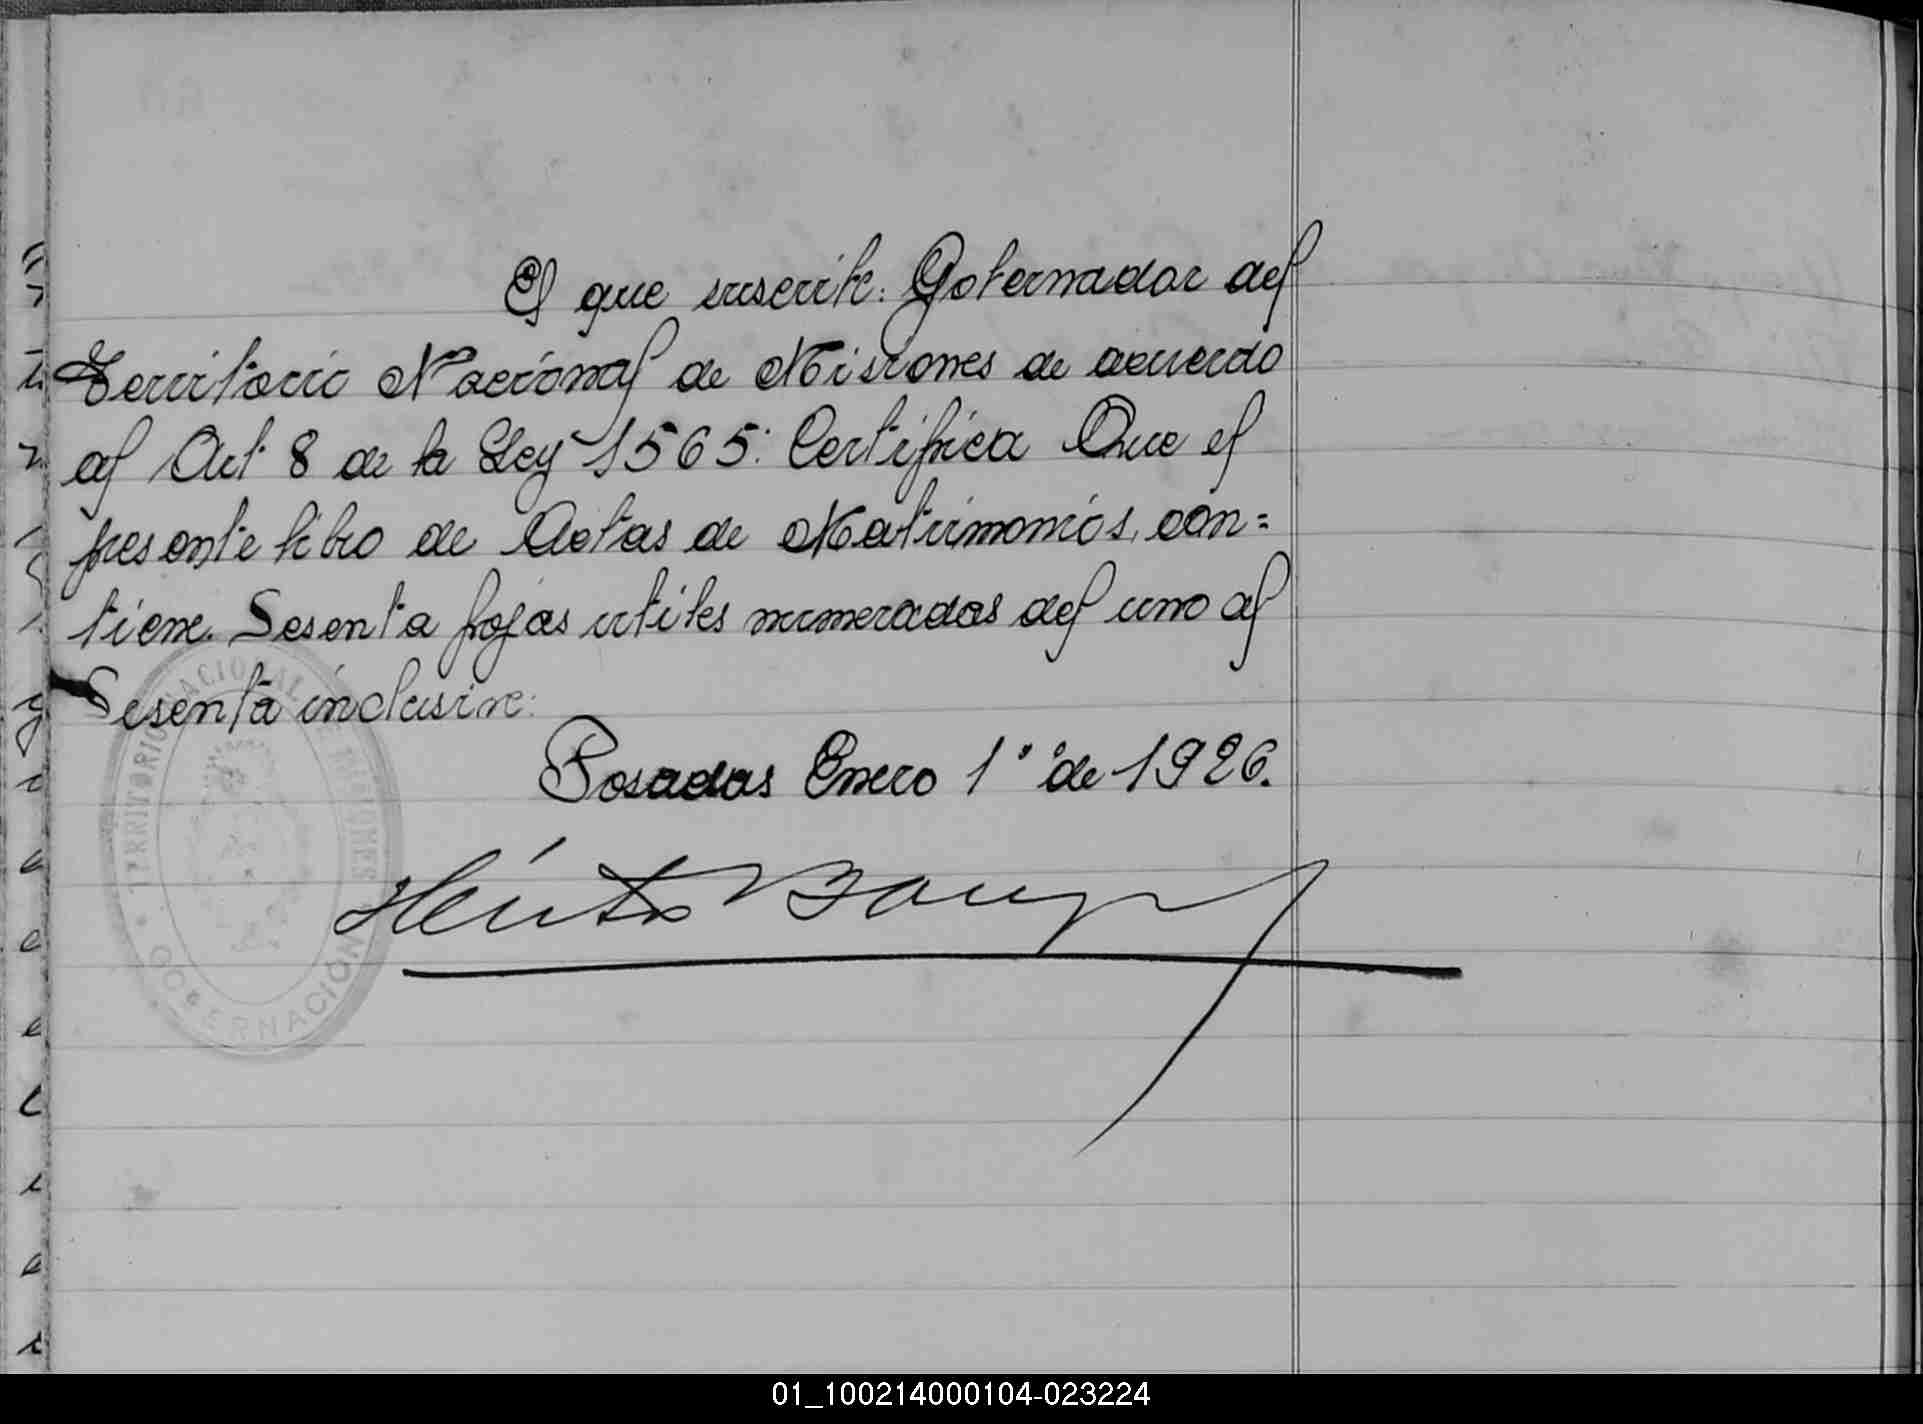 El que suscribe: Gobernador del
Territorio Nacional de Misiones de acuerdo
al Art 8 de la Ley 1565: Certifica Que el
presente libro de Actas de Matrimonios, con=
tiene. Sesenta fojas utiles numeradas del uno al
Sesenta inclusive:
Posadas Enero 1º de 1926.
Héctor Barreyro
TERRITORIO NACIONAL DE MISIONES
GOBERNACION
01_100214000104-023224